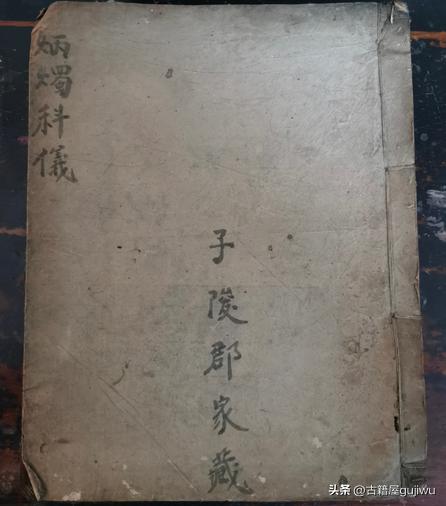 炳燭科儀
子陵郡家藏
头条 @古籍屋gujiwu